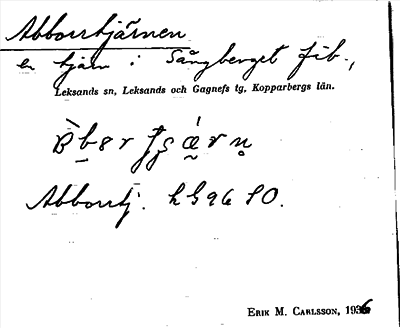 Abborrtjärnen
en tjärn i Sångberget fäb.,
Leksands sn, Leksands och Gagnefs tg, Kopparbergs län.
Abborrtj. hG96 SO.
ERIK M. CARLSSON, 1936